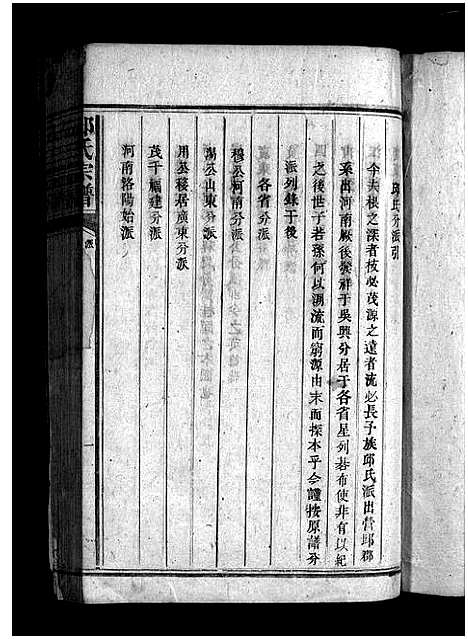 邱氏分派引
今夫根之深者枝必茂源之遠者流必長予族邱氏派出營邱郡
系出河南厥後發祥于吳興分居于各省星列碁布使非有以紀
之後世子若孫何以溯流而窮源由末而探本乎今謹按原譜分
派列錄于後
各省分派
穆公河南分派
湯公山東分派
用公移居廣東分派
茂干福建分派
河南洛陽始派
邱氏宗譜
派
一